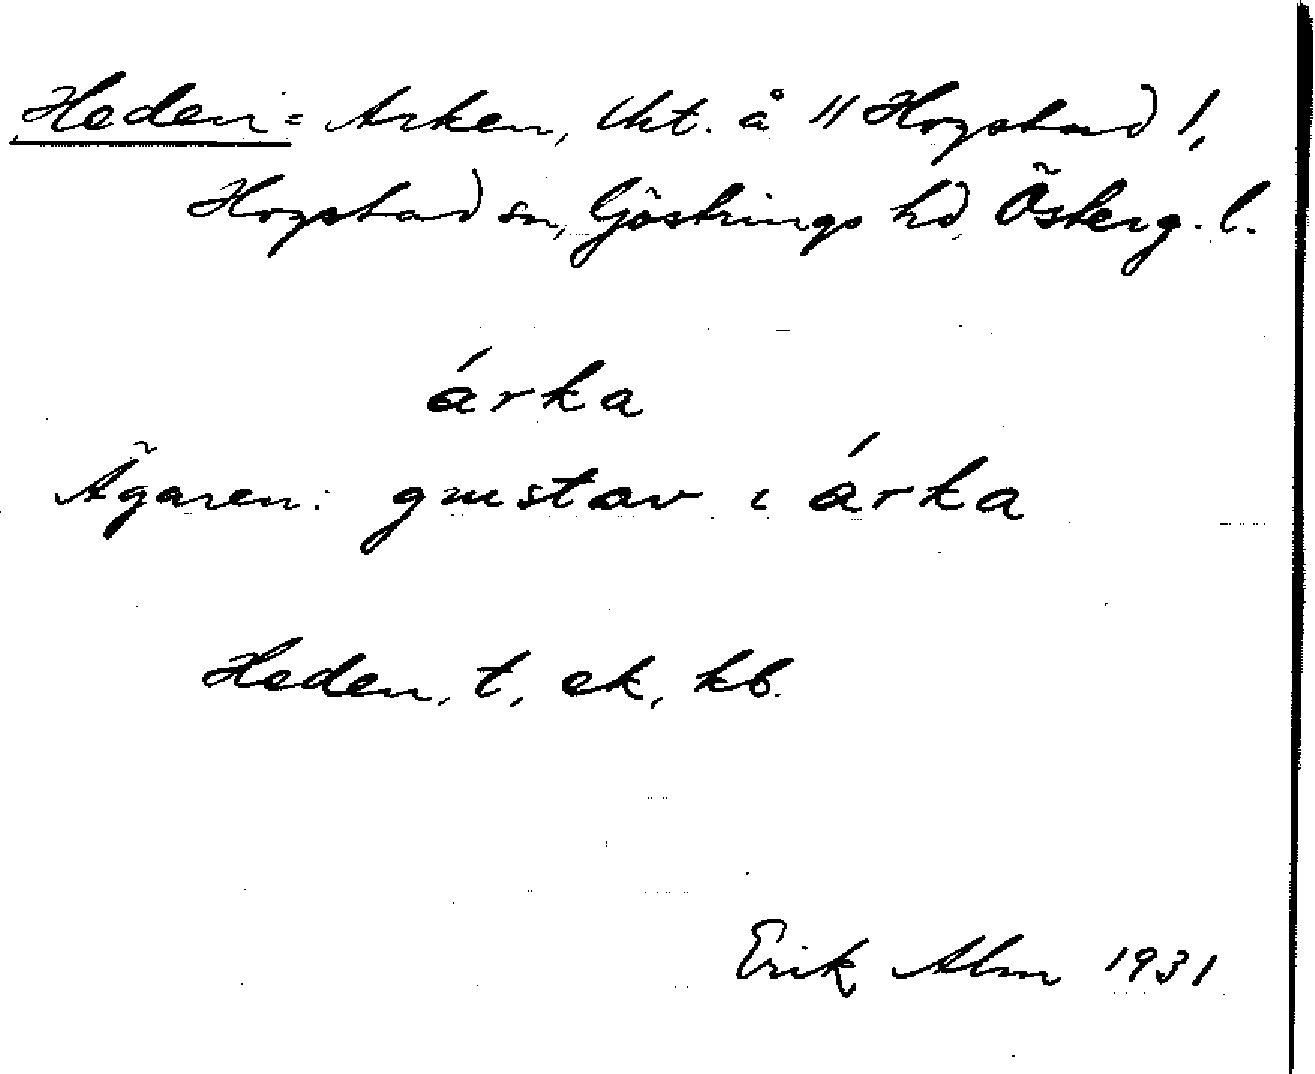 Heden = Arken, lht. å 11 Hogstad 1,
Hogstad sn, Göstrings hd, Österg. l.
árka
Ägaren: gustav i árka
Heden, t, ek, kb.
Erik Alm 1931